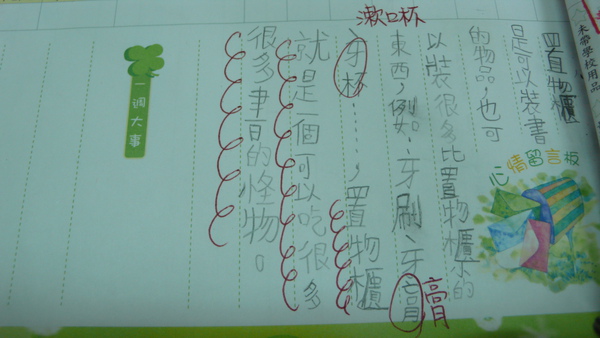 未帶學校用品
心情留言板
置物櫃
是可以裝書
的物品,也可
以裝很多比置物櫃小的
東西,例如:牙刷、牙膏
膏
漱口杯
牙杯……,置物櫃
就是一個可以吃很多
很多東西的怪物。
一週大事